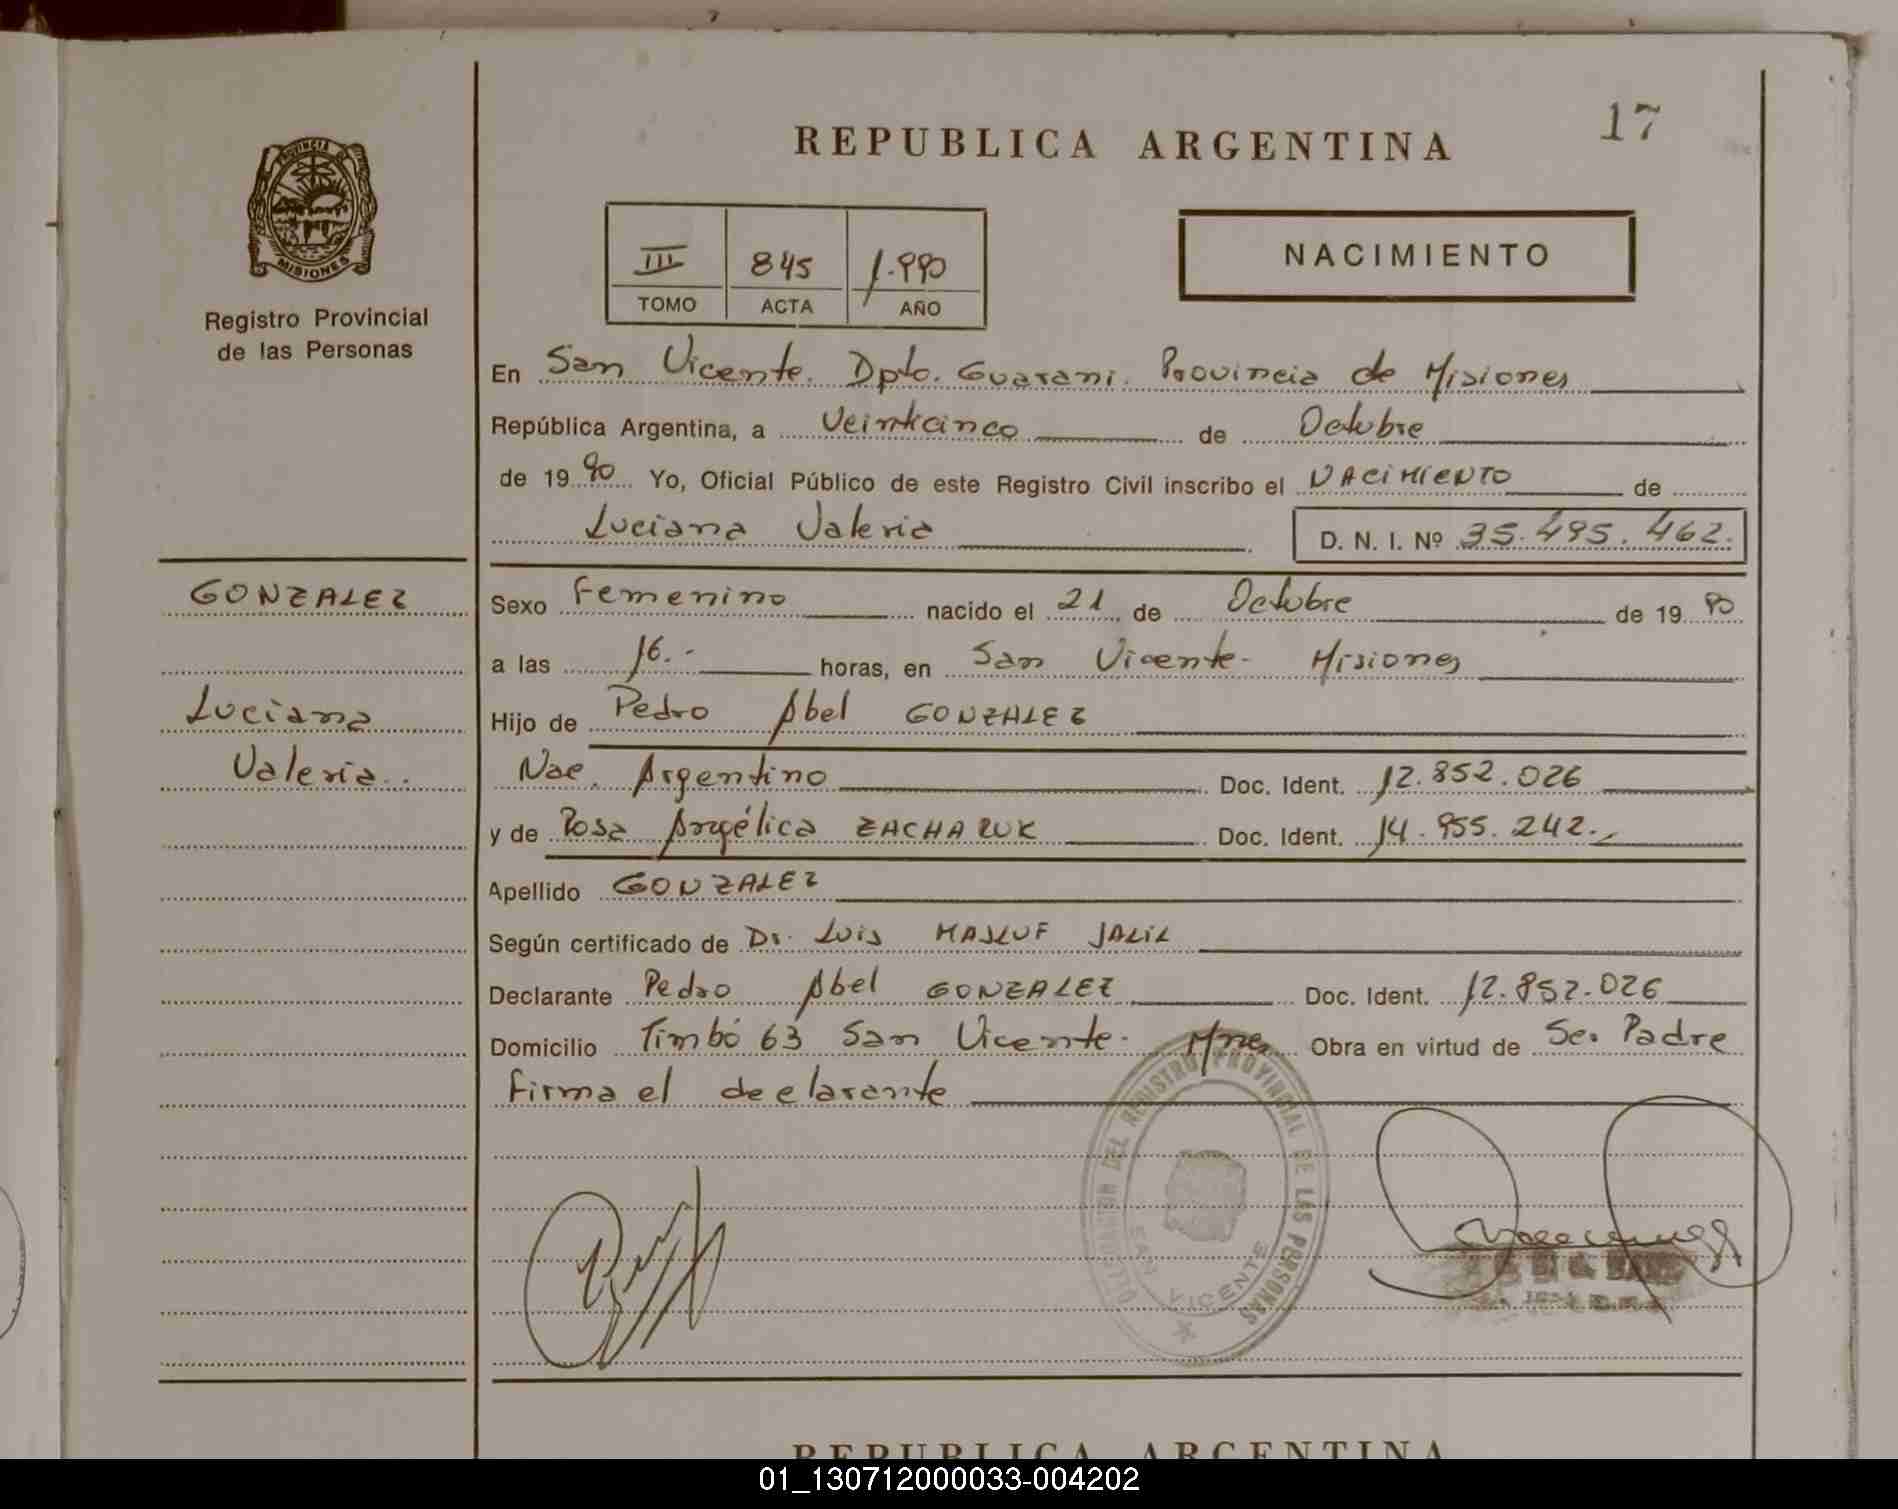 17
REPUBLICA ARGENTINA
PROVINCIA DE
MISIONES
Registro Provincial
de las Personas
III 845 1.990
TOMO ACTA AÑO
NACIMIENTO
En San Vicente. Dpto. Guarani. Provincia de Misiones
República Argentina, a Veinticinco de Octubre
de 19 90 Yo, Oficial Público de este Registro Civil inscribo el NACIMIENTO de
Luciana Valeria D. N. I. Nº 35.495.462.
GONZALEZ
Sexo Femenino nacido el 21 de Octubre de 19 90
a las 16.- horas, en San Vicente- Misiones
Luciana
Hijo de Pedro Abel GONZALEZ
Valeria..
Nac. Argentino Doc. Ident. 12.852.026
y de Rosa Angélica ZACHARUK Doc. Ident. 14.955.242.-
Apellido GONZALEZ
Según certificado de Dr. Luis MASLUF JALIL
Declarante Pedro Abel GONZALEZ Doc. Ident. 12.852.026
Domicilio Timbó 63 San Vicente- Mnes Obra en virtud de Se. Padre
Firma el declarante
DELEGACION DEL REGISTRO PROVINCIAL DE LAS PERSONAS
SAN VICENTE
REPUBLICA ARGENTINA
01_130712000033-004202